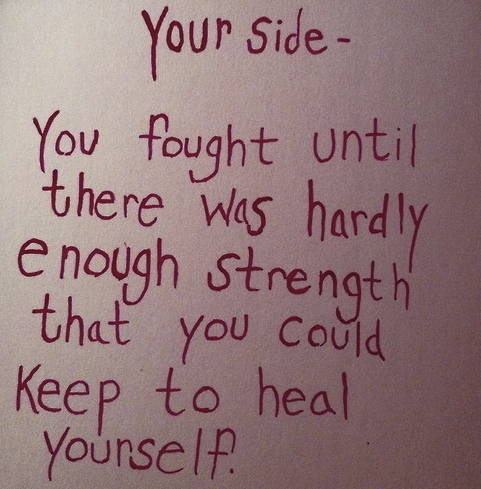 Your side -
You fought until
there was hardly
enough strength
that you could
Keep to heal
yourself.